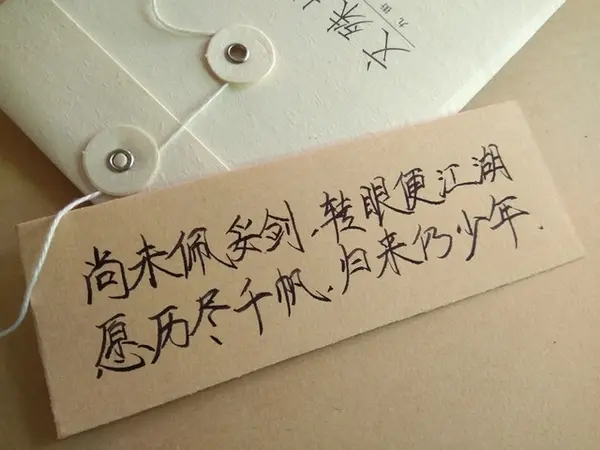 文殊
九街
尚未佩妥剑.转眼便江湖
愿历尽千帆.归来仍少年.